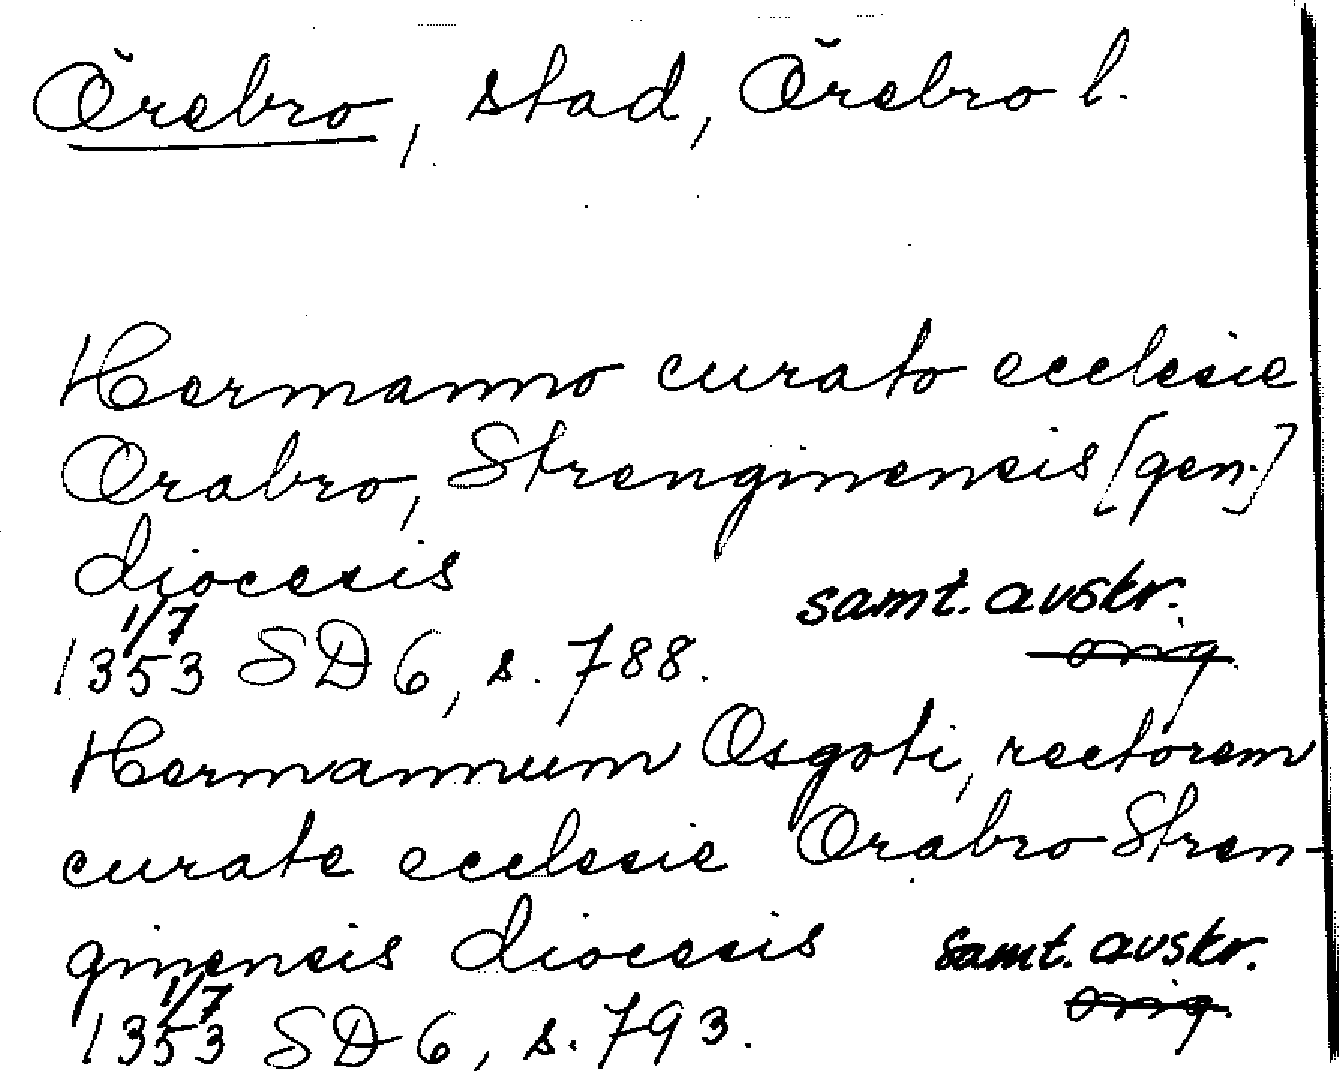 Örebro, stad, Örebro l.
Hermanno curato ecclesie
Orabro, Strenginensis [gen.]
diocesis
samt. avskr.
1/7
1353 SD 6, s. 788.
orig.
Hermannum Osgoti, rectorem
curate ecclesie Orabro Stren-
ginensis diocesis
samt. avskr.
1/7
1353 SD 6, s. 793.
orig.